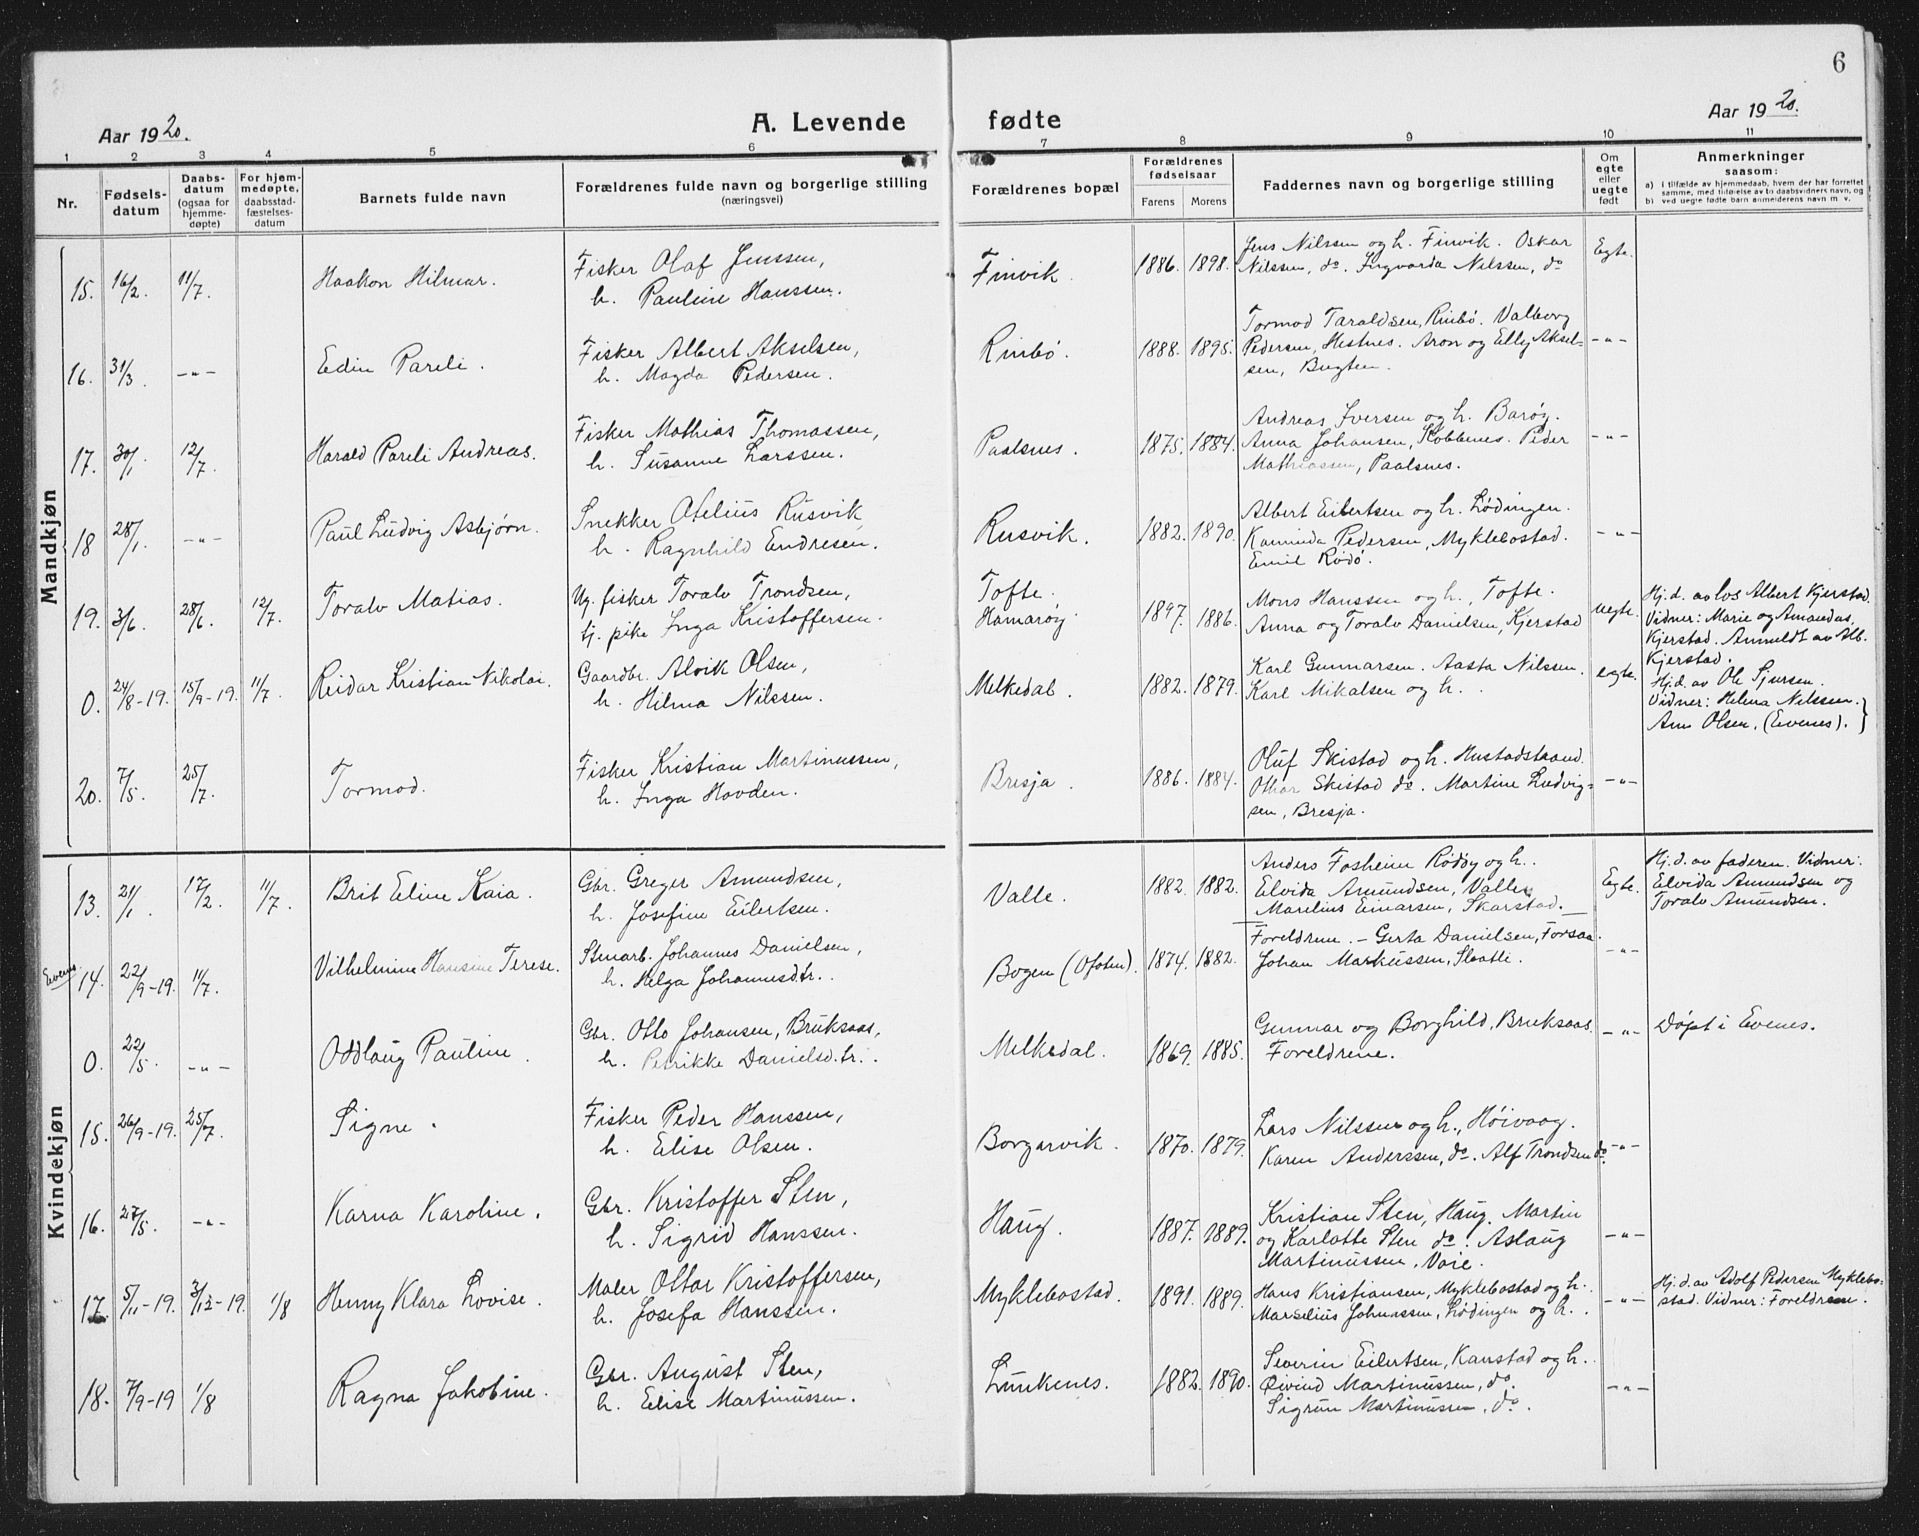 6
Aar 1920.
A. Levende fødte
Aar 1920.
1 2 3 4 5 6 7 8 9 10 11
Nr.
Fødsels-
datum
Daabs-
datum
(ogsaa for
hjemme-
døpte)
For hjem-
medøpte,
daabsstad-
fæstelses-
datum
Barnets fulde navn
Forældrenes fulde navn og borgerlige stilling
(næringsvei)
Forældrenes bopæl
Forældrenes
fødselsaar
Farens Morens
Faddernes navn og borgerlige stilling
Om
egte
eller
uegte
født
Anmerkninger
saasom:
a) i tilfælde av hjemmedaab, hvem der har forrettet
samme, med tilføielse av to daabsvidners navn, og
b) ved uegte fødte barn anmelderens navn m. v.
Mandkjøn
15. 16/2. 11/7. Haakon Hilmar.
Fisker Olaf Jenssen,
h. Pauline Hanssen.
Finvik. 1886. 1898.
Jens Nilssen og h. Finvik. Oskar
Nilssen, do. Ingvarda Nilssen, do
Egte.
16. 31/3. -"- Edin Pareli.
Fisker Albert Akselsen,
h. Magda Pedersen.
Rinbø. 1888. 1895.
Tormod Taraldsen, Rinbø. Valborg
Pedersen, Hestnes. Aron og Elly Aksel-
sen, Bugten.
-"-
17. 30/1. 12/7. Harald Pareli Andreas.
Fisker Mathias Thomassen,
h. Susanne Larssen.
Paalsnes. 1875. 1884.
Andreas Iversen og h. Barøy.
Anna Johansen, Kobbenes. Peder
Mathiassen, Paalsnes.
-"-
18 28/1. -"- Paul Ludvig Asbjørn.
Snekker Otelius Rusvik
h. Ragnhild Endresen.
Rusvik. 1882. 1890.
Albert Eilertsen og h. Lødingen.
Pedersen, Myklebostad.
Emil Rødø.
-"-
19. 3/6. 28/6. 12/7. Toralv Matias.
Ug. fisker Toralv Trondsen,
tj. pike Inga Kristoffersen.
Tofte.
Hamarøy 1897. 1886.
Mons Hanssen og h., Tofte.
Anna og Toralv Danielsen, Kjerstad
uegte.
Hj.d. av los Albert Kjerstad.
Vidner: Marie og Amandus
Kjerstad. Anmeldt av Alb.
Kjerstad.
0. 24/8-19. 15/9-19. 11/7. Reidar Kristian Nikolai.
Gaardbr. Alvik Olsen,
h. Hilma Nilssen.
Melkedal. 1882. 1879.
Karl Gunnarsen. Aasta Nilssen.
Karl Mikalsen og h.
egte.
Hj.d. av Ole Sjursen.
Vidner: Helena Nilssen.
Ane Olsen, (Evenes).
20. 7/5. 25/7. Tormod.
Fisker Kristian Martinussen,
h. Inga Hovden.
Bresja. 1886. 1884.
Oluf Skistad og h. Hustadstrand.
Othar Skistad do. Martine Ludvig-
sen, Bresja.
-"-
Kvindekjøn
13. 21/1. 17/2. 11/7. Brit Eline Kaia.
Gbr. Greger Amundsen,
h. Josefine Eilertsen.
Valle. 1882. 1882.
Anders Fosheim Rødøy og h.
Elvida Amundsen, Valle.
Marelius Einarsen, Skarstad.
Egte.
Hj.d. av faderen. Vidner:
Elvida Amundsen og
Toralv Amundsen.
Evenes
14. 22/9-19. 11/7. Vilhelmine Hansine Terese.
Stenarb. Johannes Danielsen,
h. Helga Johannesdtr.
Bogen (Ofoten). 1874. 1882.
Foreldrene. - Gerta Danielsen, Forsaa.
Johan Markussen, Slaatli.
-"-
0. 22/5. -"- Oddlaug Pauline.
Gbr. Otto Johansen, Bruksaas,
h. Petrikke Danielsd.tr.
Melkedal. 1869. 1885.
Gunnar og Borghild Bruksaas
Foreldrene.
-"- Døpt i Evenes.
15. 26/9-19. 25/7. Signe.
Fisker Peder Hanssen,
h. Elise Olsen.
Borgarvik. 1870. 1879.
Lars Nilssen og h., Høivaag.
Karen Anderssen, do. Alf Trondsen do.
-"-
16. 27/5. -"- Karna Karoline.
Gbr. Kristoffer Sten,
h. Sigrid Hanssen.
Haug. 1887. 1889.
Kristian Sten, Haug. Martin
og Karlotte Sten do. Aslaug
Martinussen, Voie.
-"-
17. 5/11-19. 3/12-19. 1/8 Henny Klara Lovise.
Maler Ottar Kristoffersen,
h. Josefa Hanssen.
Myklebostad. 1891. 1889.
Hans Kristiansen, Myklebostad og h.
Marselius Johanssen, Lødingen og h.
-"-
Hj.d. av Adolf Pedersen Myklebo-
stad. Vidner: Foreldrene.
18. 7/9-19 1/8 Ragna Jakobine.
Gbr. August Sten,
h. Elise Martinussen.
Lunkenes. 1882. 1890.
Severin Eilertsen, Kanstad og h.
Øivind Martinussen, do.
Sigrun Martinussen, do.
-"-